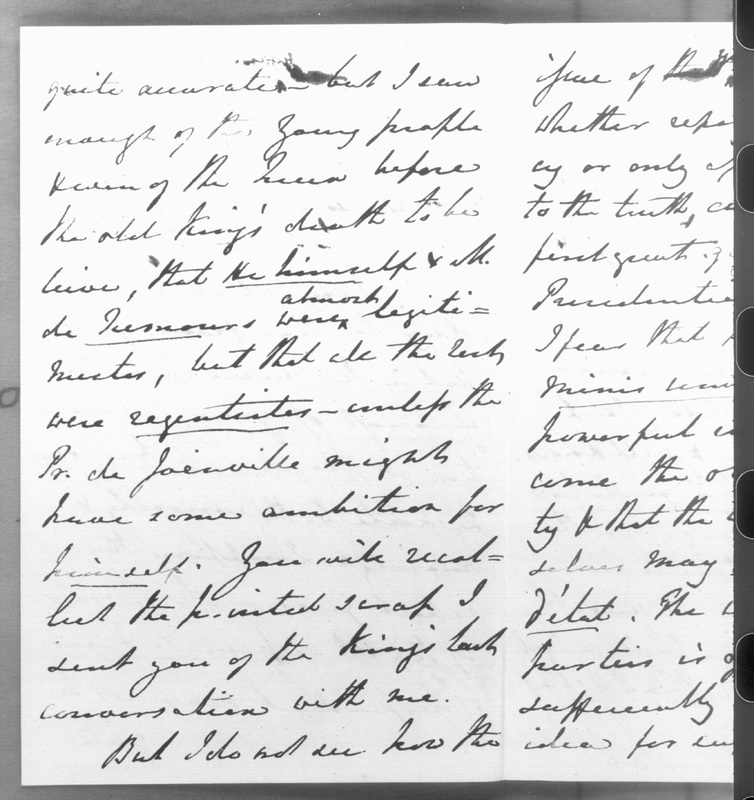 quite accurate – but I saw
enough of the young people
& even of the Queen before
the old King's death to be
lieve, that He himself & M.
de Nemours were almost legiti=
mistes, but that all the rest
were regentistes – unless the
Pr. de Joinville might
have some ambition for
himself. You will recol=
lect the printed scrap I
sent you of the King's last
conversation with me.
But I do not see how the
issue of the
whether
cy or only
to the truth,
first great
I fear that
powerful
come the
ty & that the
selves may
d'état. The
parties is
sufficiently
idea for